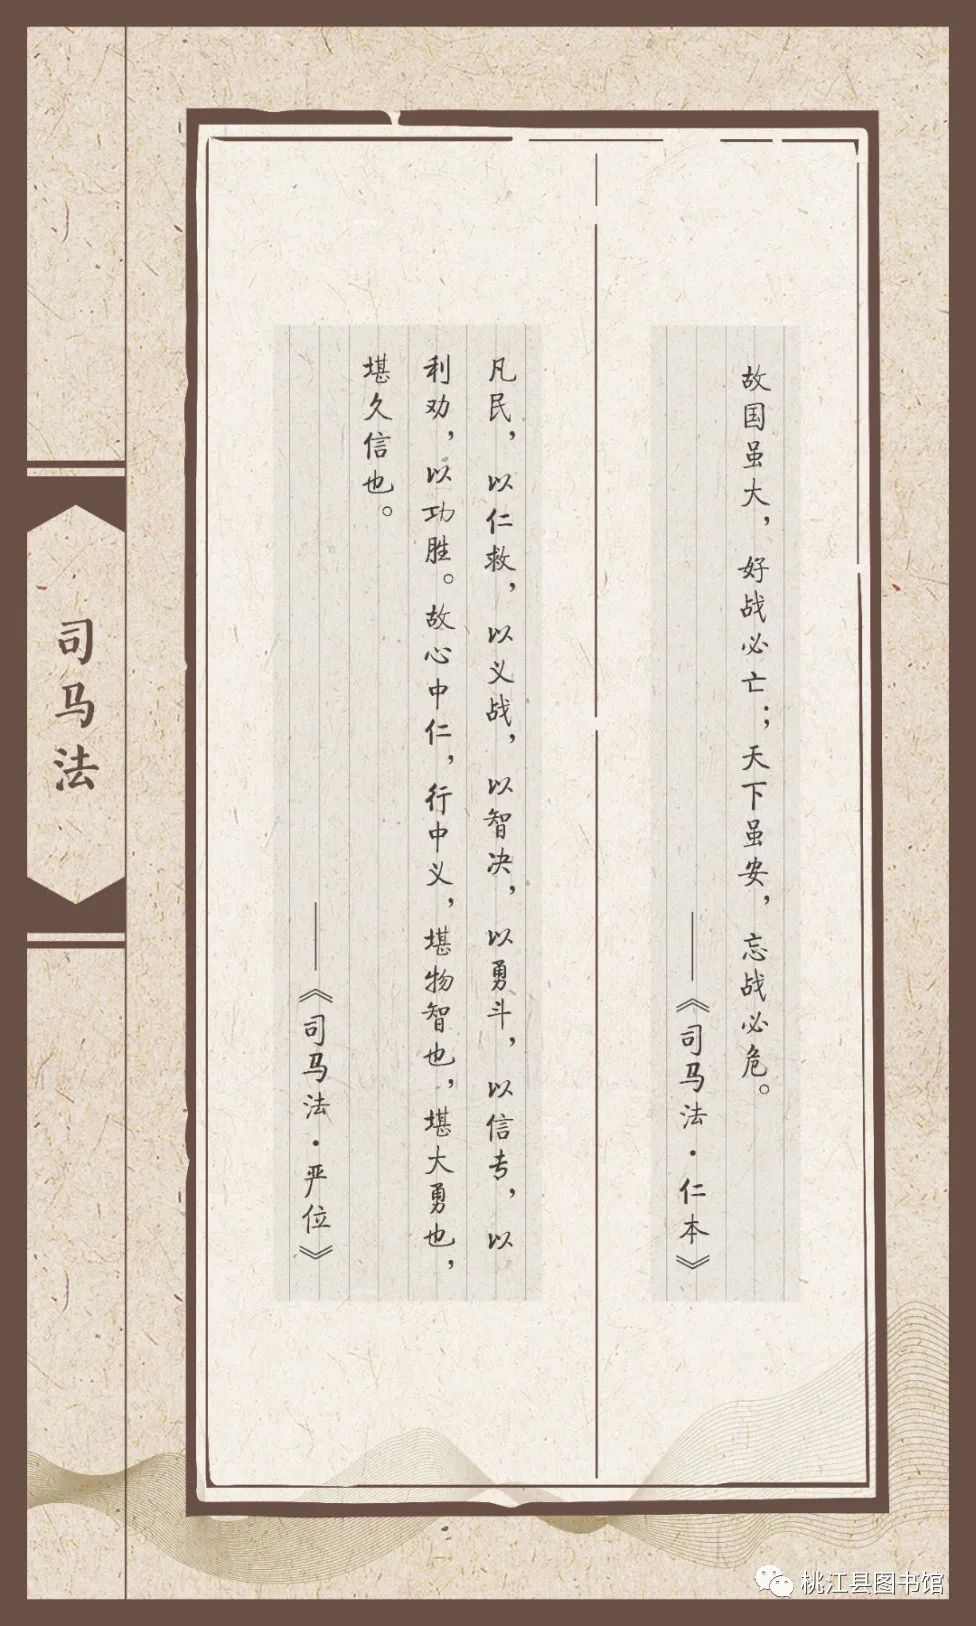 故国虽大，好战必亡；天下虽安，忘战必危。
——《司马法·仁本》
凡民，以仁救，以义战，以智决，以勇斗，以信专，以
利劝，以功胜。故心中仁，行中义，堪物智也，堪大勇也，
堪久信也。
——《司马法·严位》
司马法
桃江县图书馆